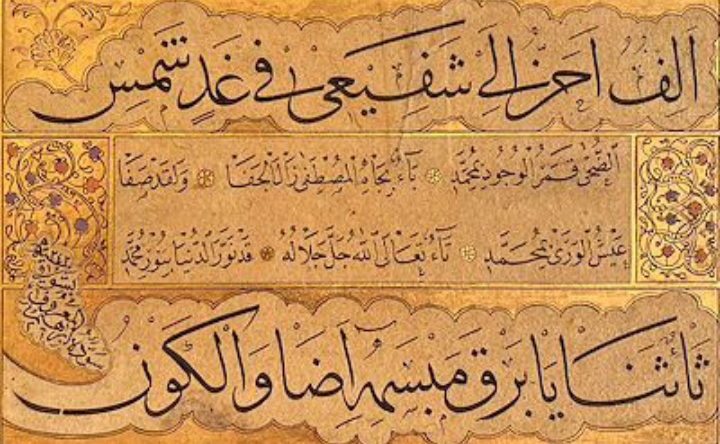 الف احن الى شفيعى فى غد شمس
الضحى قمر الوجود محمد باء بجاه المصطفى زال الجفا ولقد صفا
عيش الورى بمحمد تاء تعالى الله جل جلاله قد نور الدنيا بنور محمد
ثا ثنايا برق مبسمه اضا والكون